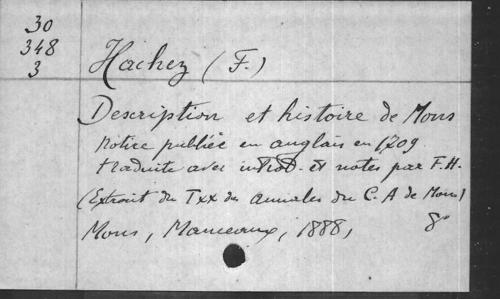 30
348
3
Hachez (F.)
Description et histoire de Mons
Notice publiée en anglais en 1709
traduite avec introd. et notes par F.H.
(Extrait du T xx des annales du C. A de Mons)
Mons, Manceaux, 1888, 8°